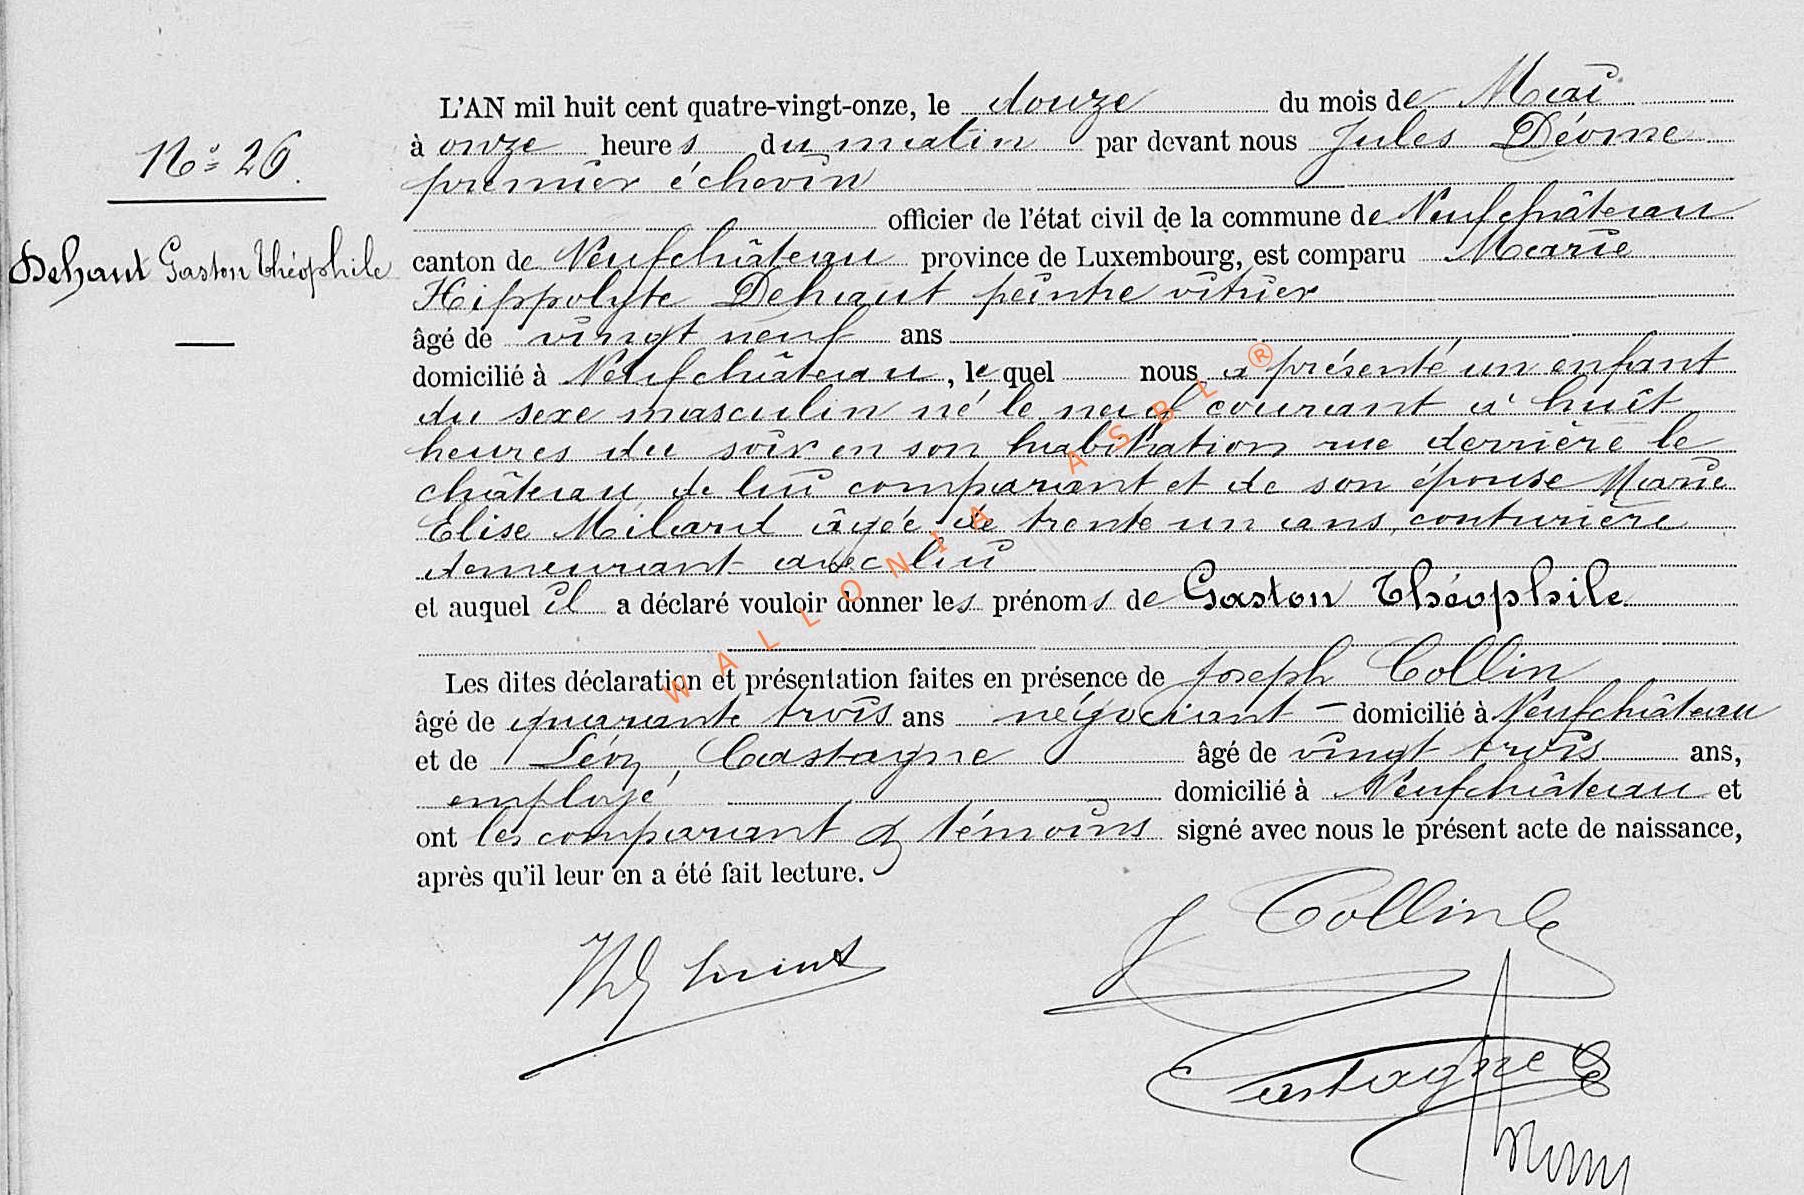 L'AN mil huit cent quatre-vingt-onze, le douze du mois de Mai
No 26.
à onze heures du matin par devant nous Jules Déome
premier échevin
officier de l'état civil de la commune de Neufchâteau
Dehaut Gaston Théophile
canton de Neufchâteau province de Luxembourg, est comparu Marie
Hippolyte Dehaut peintre vitrier
âgé de vingt neuf ans
domicilié à Neufchâteau, lequel nous a présenté un enfant
du sexe masculin né le neuf courant à huit
heures du soir en son habitation rue derrière le
château de lui comparant et de son épouse Marie
Elise Milard âgée de trente un ans, couturière
demeurant avec lui
et auquel il a déclaré vouloir donner les prénoms de Gaston Théophile
Les dites déclaration et présentation faites en présence de Joseph Collin
âgé de quarante trois ans négociant – domicilié à Neufchâteau
et de Léon Castagne âgé de vingt trois ans,
employé domicilié à Neufchâteau et
ont les comparant & témoins signé avec nous le présent acte de naissance,
après qu'il leur en a été fait lecture.
J Collin
Castagne
WALLONIA ASBL ®